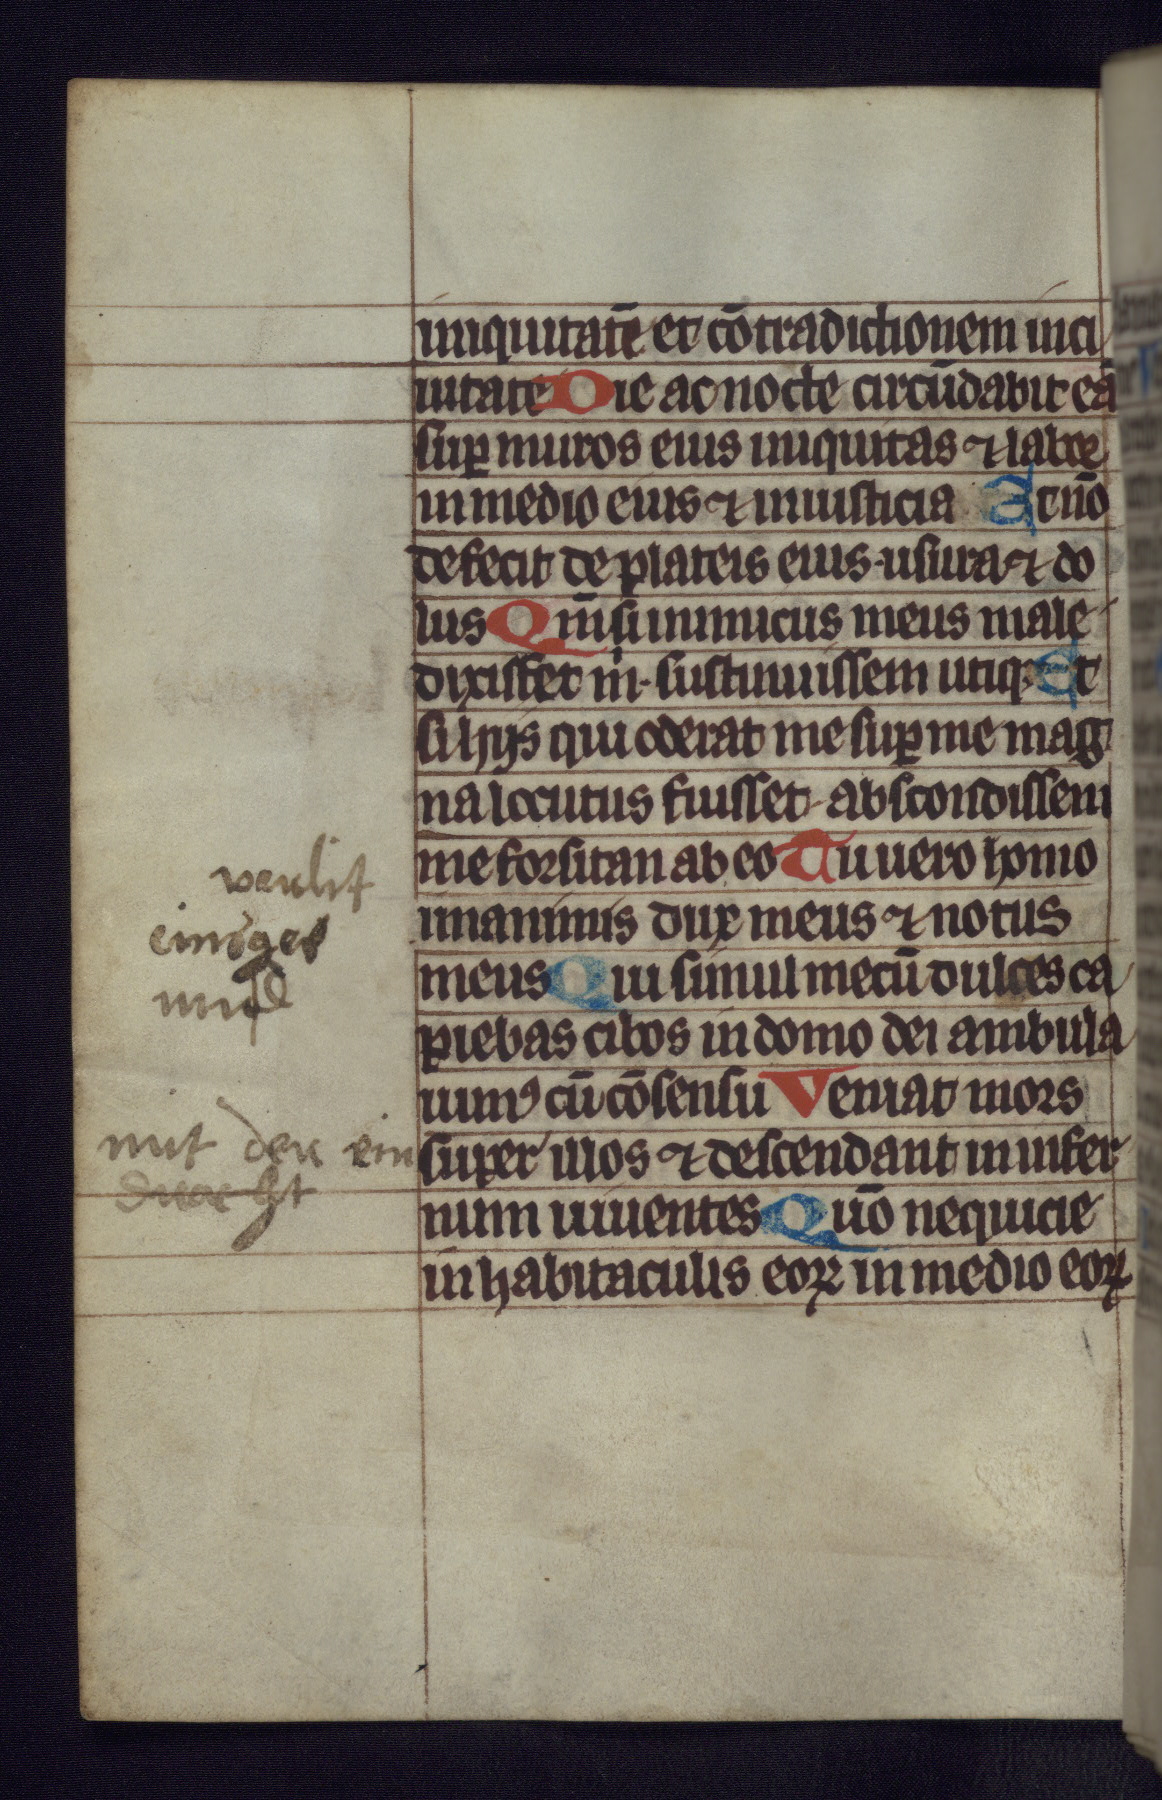 iniquitatē et cōtradictionem in ci
uitate Die ac nocte circūdabit eā
suꝑ muros eius iniquitas ⁊ labor
in medio eius ⁊ iniusticia Et nō
defecit de plateis eius usura ⁊ do
lus Qm̄ si inimicus meus male
dixisset m̄ sustinuissem utiqꝫ Et
si hijs qui oderat me suꝑ me mag
na locutus fuisset abscondissem
me forsitan ab eo Tu uero homo
unanimis dux meus ⁊ notus
meus Qui simul mecū dulces ca
piebas cibos in domo dei ambula
uimꝰ cū cōsensu Veniat mors
super illos ⁊ descendant in infer
num uiuentes Quō nequicie
in habitaculis eoꝝ in medio eoꝝ
einiges
mit der ein
dracht